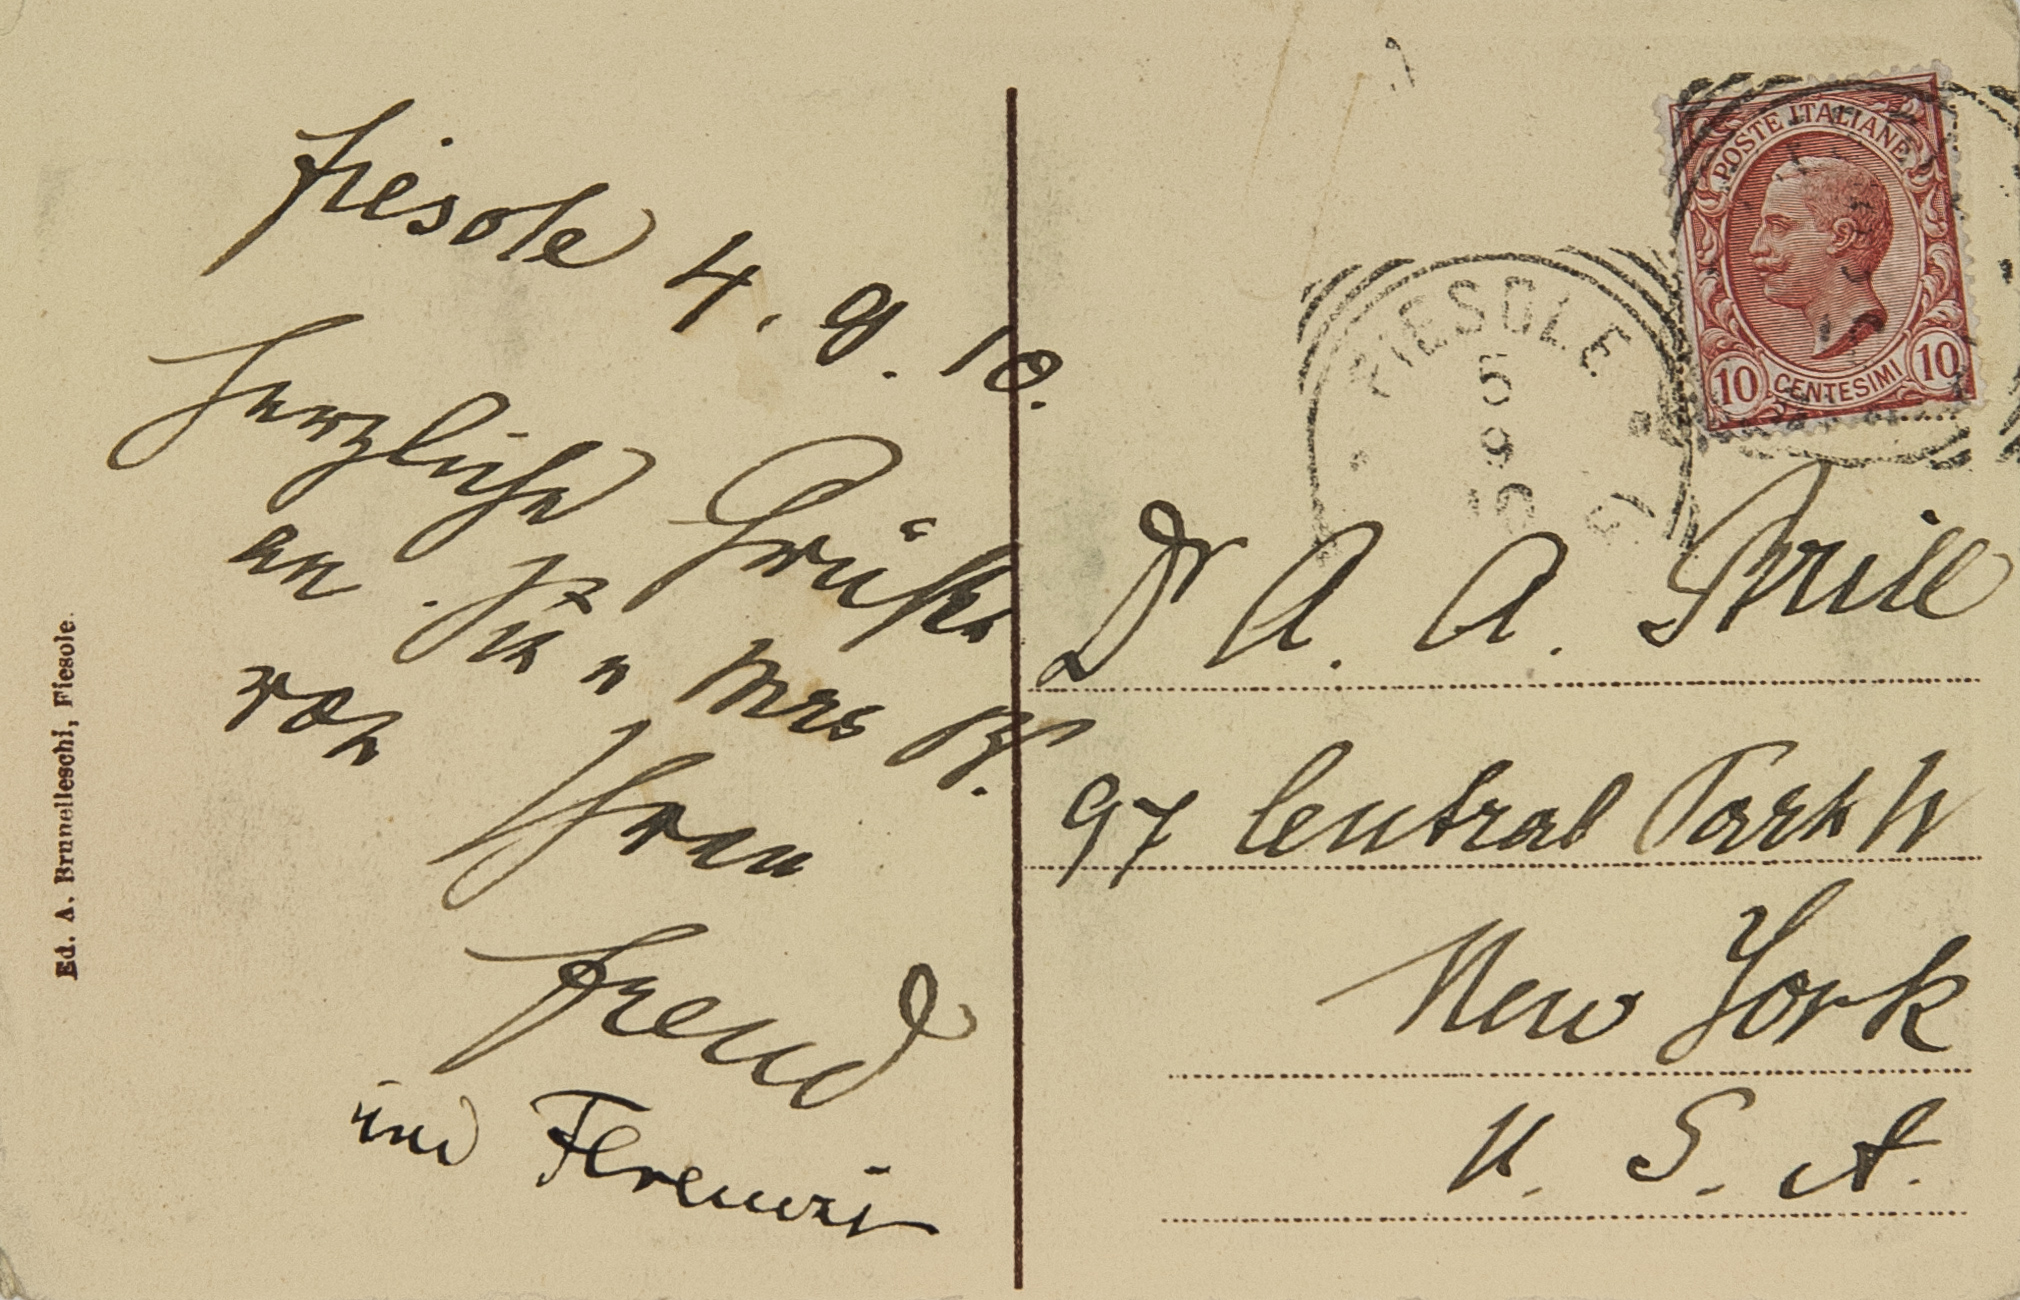 Fiesole 4. 9. 10.
Herzliche Grüße
an Sie u Mrs B.
von Ihren
Freud
und Ferenczi
Ed. A. Brunelleschi, Fiesole.
POSTE ITALIANE
10 CENTESIMI 10
FIESOLE
5
9
10
Dr A. A. Brill
97 Central Park W
New York
U. S. A.